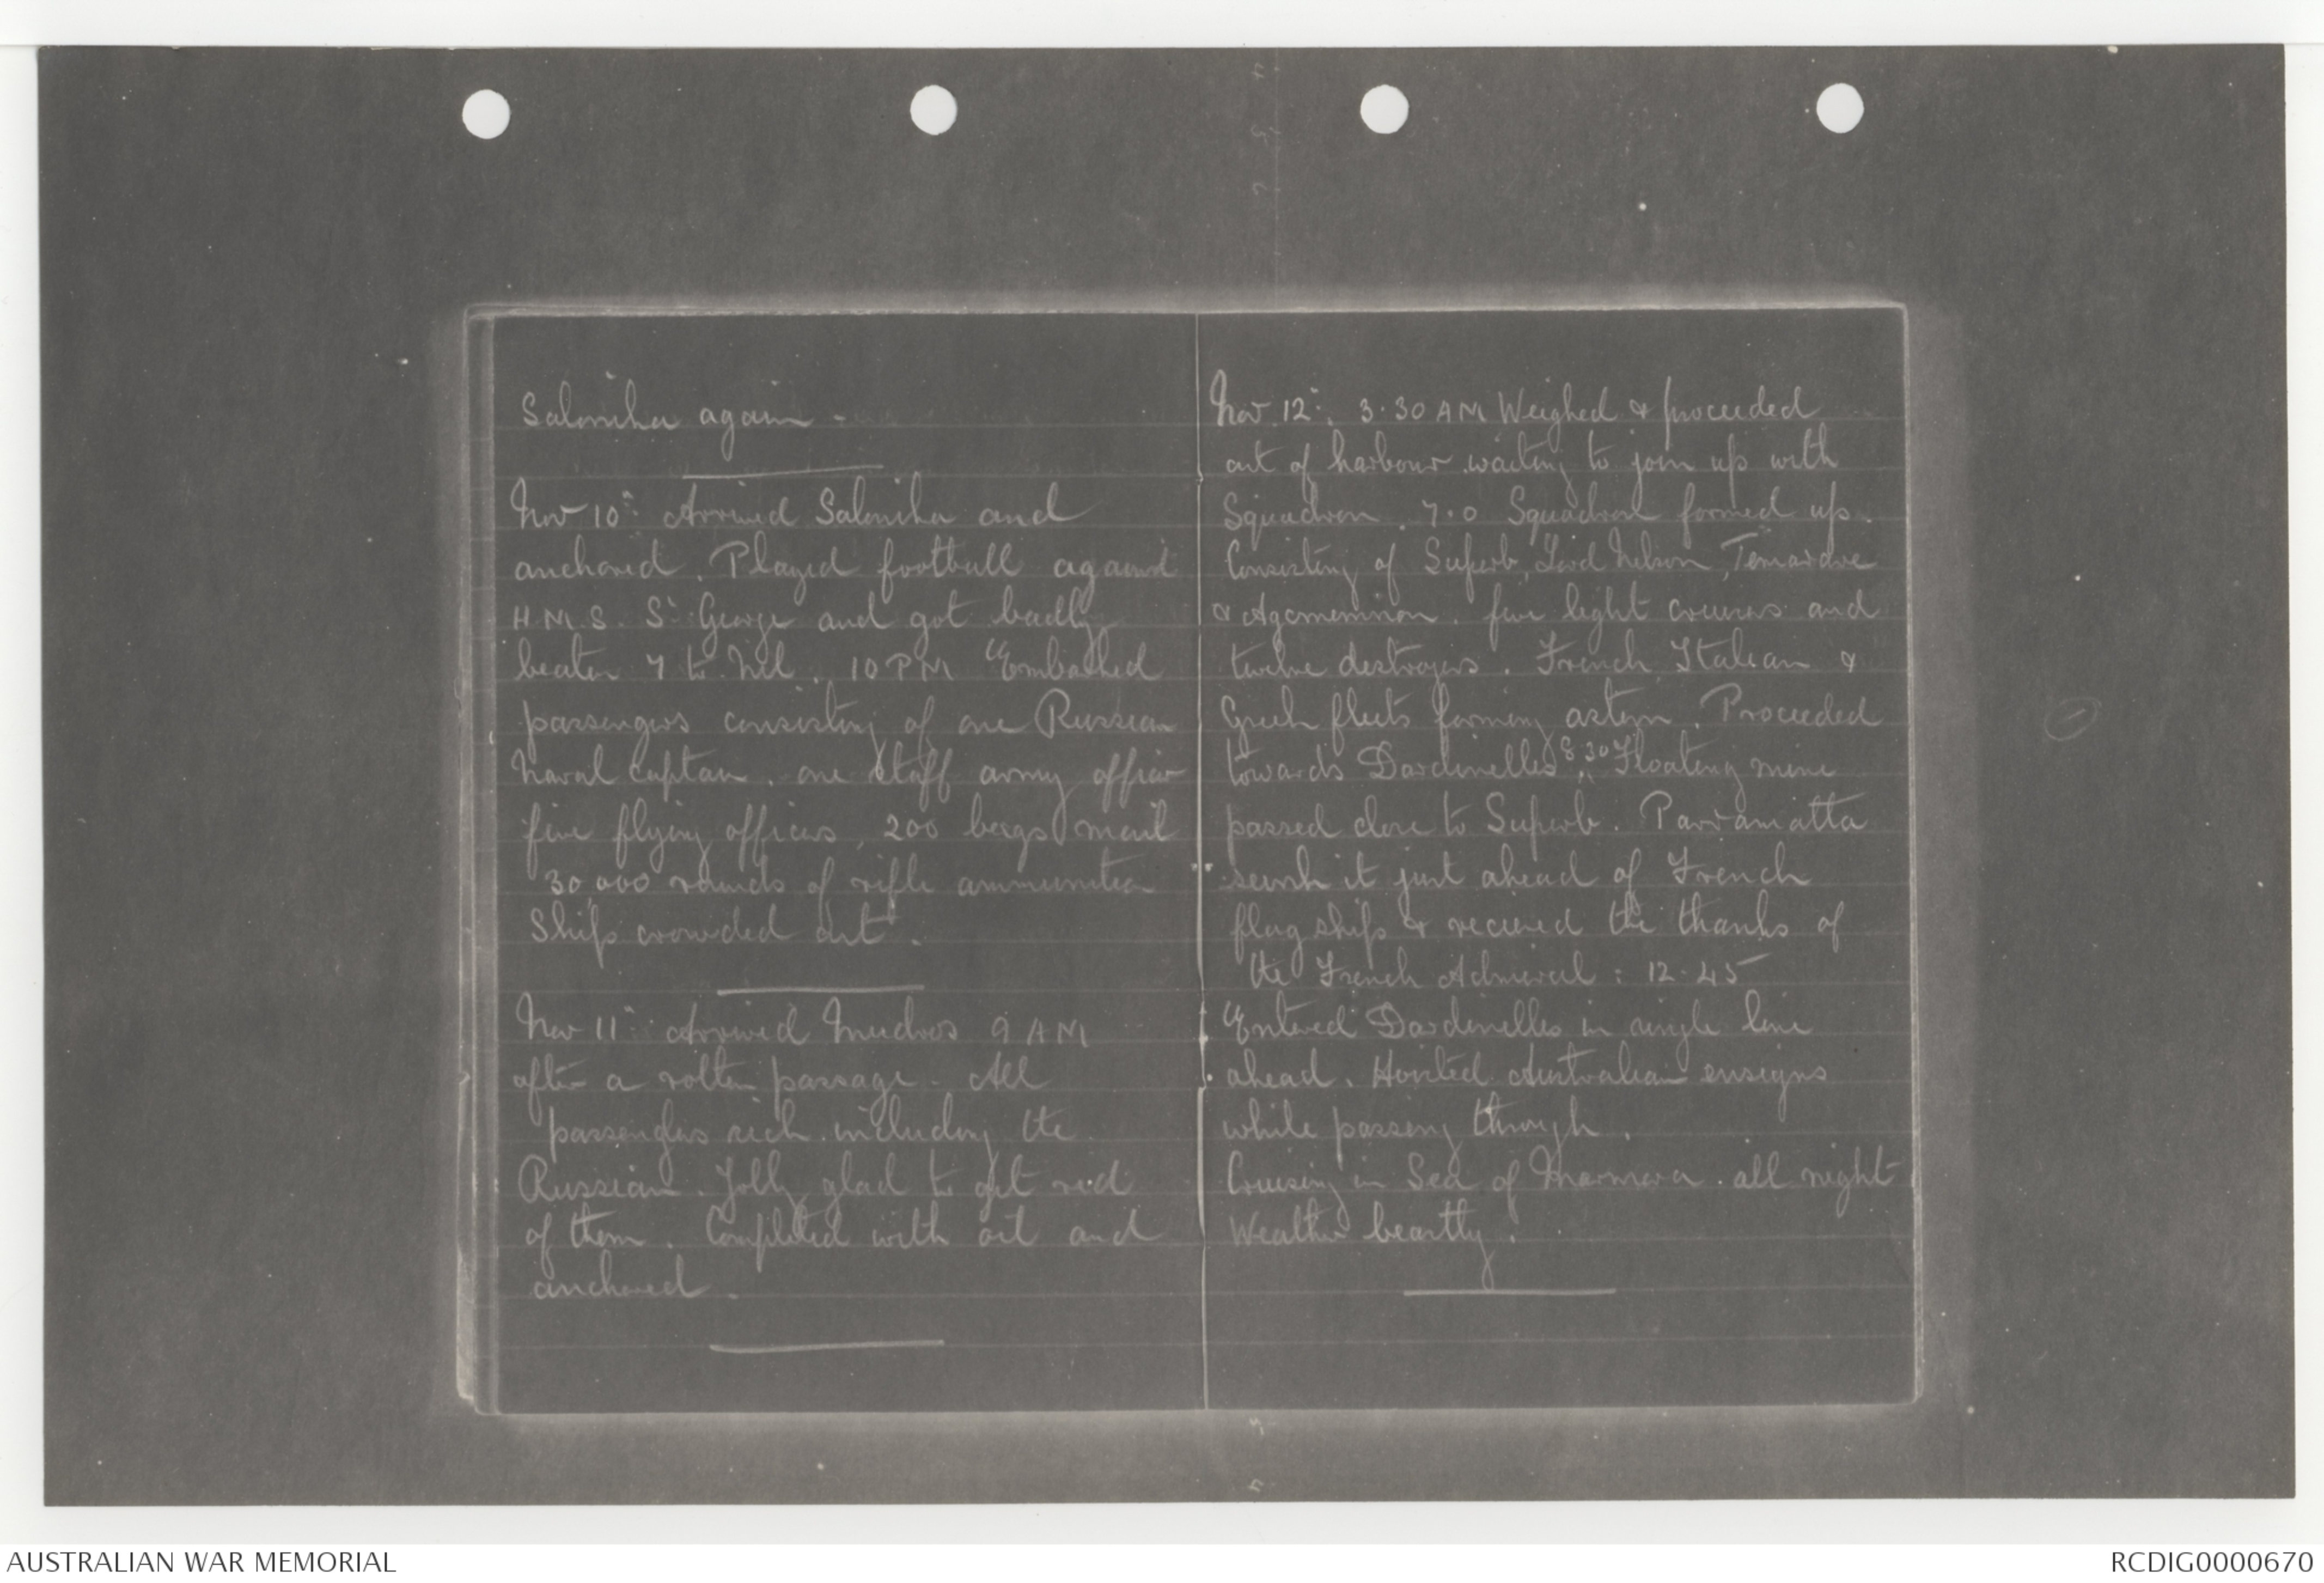 Salonika again -
Nov 10th: Arrived Salonika and
anchored. Played football against
H.M.S. St George and got badly
beaten 7 to Nil. 10 PM Embarked
passengers consisting of one Russian
Naval Captain, one staff army officer
five flying officers, 200 bags mail
30,000 rounds of rifle ammunition
Ship crowded out.
Nov 11th: Arrived Mudros 9 AM
after a rotten passage. All
passengers sick including the
Russian. Jolly glad to get rid
of them. Completed with oil and
anchored.
Nov 12th: 3.30 AM Weighed & proceeded
out of harbour waiting to join up with
Squadron. 7.0 Squadron formed up.
Consisting of Superb, Lord Nelson, Temeraire
& Agamemnon. five light cruisers and
twelve destroyers. French, Italian &
Greek fleets forming astern. Proceeded
towards Dardinelles 8.30 Floating mine
passed close to Superb. Parramatta
sunk it just ahead of French
flag ship & recieved the thanks of
the French Admiral: 12.45
Entered Dardinelles in single line
ahead. Hoisted Australian ensigns
while passing through.
Cruising in Sea of Marmora all night
Weather beastly.
AUSTRALIAN WAR MEMORIAL
RCDIG0000670